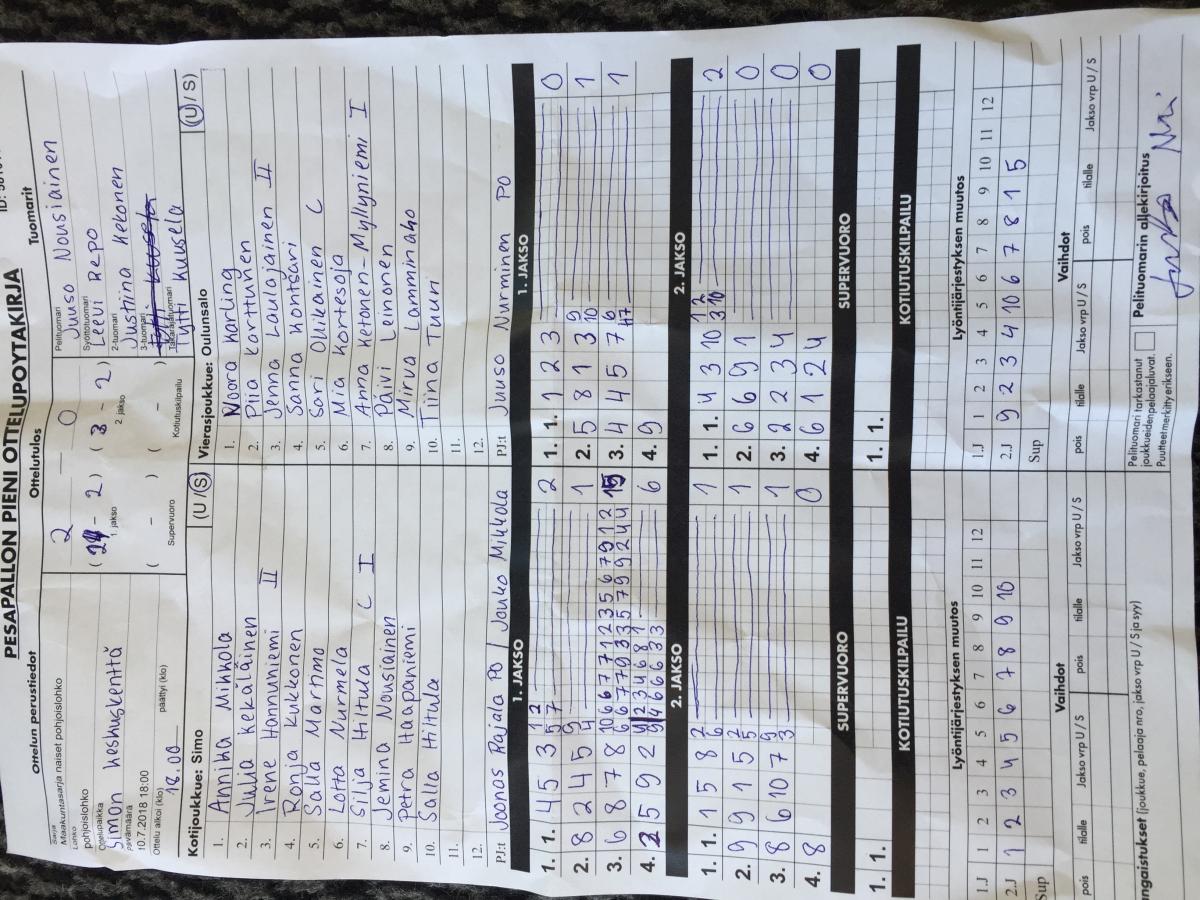 PESÄPALLON PIENI OTTELUPÖYTÄKIRJA
Ottelun perustiedot
Sarja
Maakuntasarja naiset pohjoislohko
Lohko
pohjoislohko
Ottelupaikka
Simon keskuskenttä
päivämäärä
10.7.2018 18:00
Ottelu alkoi (klo) päättyi (klo)
18.00
Ottelutulos
2 — 0
2) (3 - 2)
1. jakso 2. jakso
( - ) ( - )
Supervuoro Kotiutuskilpailu
Tuomarit
Pelituomari
Juuso Nousiainen
Syöttötuomari
Leevi Repo
2-tuomari
Justiina Kekonen
3-tuomari
Takarajatuomari
Tytti Kuusela
Kotijoukkue: Simo (U / S)
1. Annika Mikkola
2. Julia Kekäläinen
3. Irene Hannuniemi II
4. Ronja Kukkonen
5. Salla Martimo
6. Lotta Nurmela
7. Silja Hiltula C I
8. Jemina Nousiainen
9. Petra Haapaniemi
10. Salla Hiltula
11.
12.
PJ:t Joonas Rajala PO / Jouko Mikkola
Vierasjoukkue: Oulunsalo (U / S)
1. Noora Karling
2. Piia Korttinen
3. Jenna Laulajainen II
4. Sanna Kontsari
5. Sari Oikainen C
6. Mia Kortesoja
7. Anna Ketonen-Myllyniemi I
8. Päivi Leinonen
9. Mirva Lamminaho
10. Tiina Tuuri
11.
12.
PJ:t Juuso Nurminen PO
1. JAKSO
1. 1. 4 5 3 2
2. 8 2 4 5 1
3. 6 8 7 8
4. 5 9 2 6
2. JAKSO
1. 1. 1 5 8 1
2. 9 9 1 5 1
3. 8 6 10 7 1
4. 8 0
SUPERVUORO
1. 1.
KOTIUTUSKILPAILU
1. JAKSO
1. 1. 1 2 3 0
2. 5 8 1 3 1
3. 4 4 5 7 1
4. 9
2. JAKSO
1. 1. 4 3 10 2
2. 6 6 9 1 0
3. 2 2 3 4 0
4. 6 1 2 4 0
SUPERVUORO
1. 1.
KOTIUTUSKILPAILU
Lyöntijärjestyksen muutos
1.J 1 2 3 4 5 6 7 8 9 10 11 12
2.J 1 2 3 4 5 6 7 8 9 10
Sup
Vaihdot
pois tilalle Jakso vrp U / S pois tilalle Jakso vrp U / S
Lyöntijärjestyksen muutos
1.J 1 2 3 4 5 6 7 8 9 10 11 12
2.J 9 2 3 4 10 6 7 8 1 5
Sup
Vaihdot
pois tilalle Jakso vrp U / S pois tilalle Jakso vrp U / S
(joukkue, pelaaja nro, jakso vrp U / S ja syy)
Pelituomari tarkastanut
joukkueidenpelaajaluvat.
Puutteet merkitty erikseen.
Pelituomarin allekirjoitus